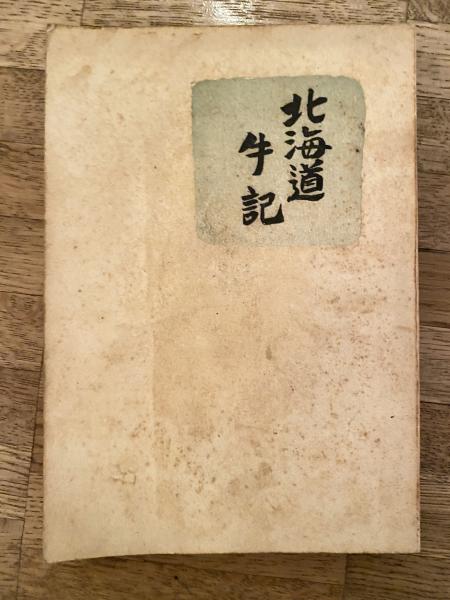 北海道
牛記